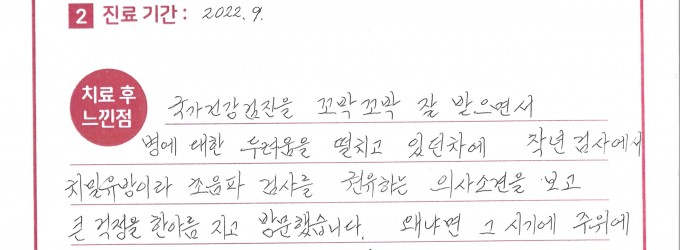 2 진료 기간 : 2022. 9.
치료 후
느낀점
국가건강검진을 꼬박꼬박 잘 받으면서
병에 대한 두려움을 떨치고 있던차에 작년 검사에서
치밀유방이라 초음파 검사를 권유하는 의사소견을 보고
큰 걱정을 한아름 지고 방문했습니다. 왜냐면 그 시기에 주위에